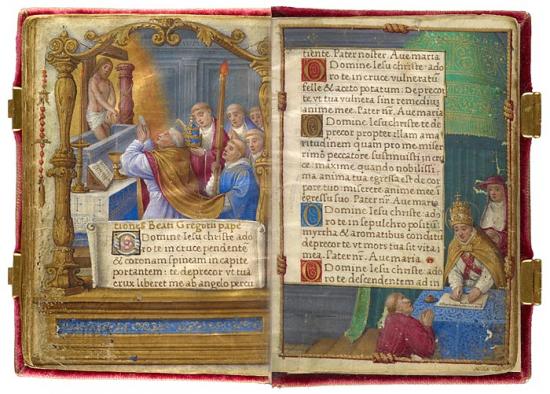 tiones Beati Gregorii pape
O Domine iesu christe ado
ro te in cruce pendente
& coronam spineam in capite
portantem: te deprecor vt tua
crux liberet me ab angelo percu
tiente. Pater noster. Aue maria
O Domine Iesu christe ado
ro te in cruce vulneratū
felle & aceto potatum: Deprecor
te vt tua vulnera sint remediū
anime mee. Pater nr̄. Aue maria
O Domine Iesu christe te de
precor propter illam ama
ritudinem quam pro me miser
rimo peccatore sustinuisti in cru
ce. maxime quando nobilissi
na anima tua egressa est de cor
pore tuo: miserere anime mee ī
egressu suo Pater nr̄. Aue maria.
O Domine Iesu christe ado
ro te in sepulchro positū
myrrha & aromatibus conditū
deprecor te vt mors tua sit vita
mea. Pater nr̄. Aue maria.
O Domine Iesu christe ado
ro te descendentem ad in